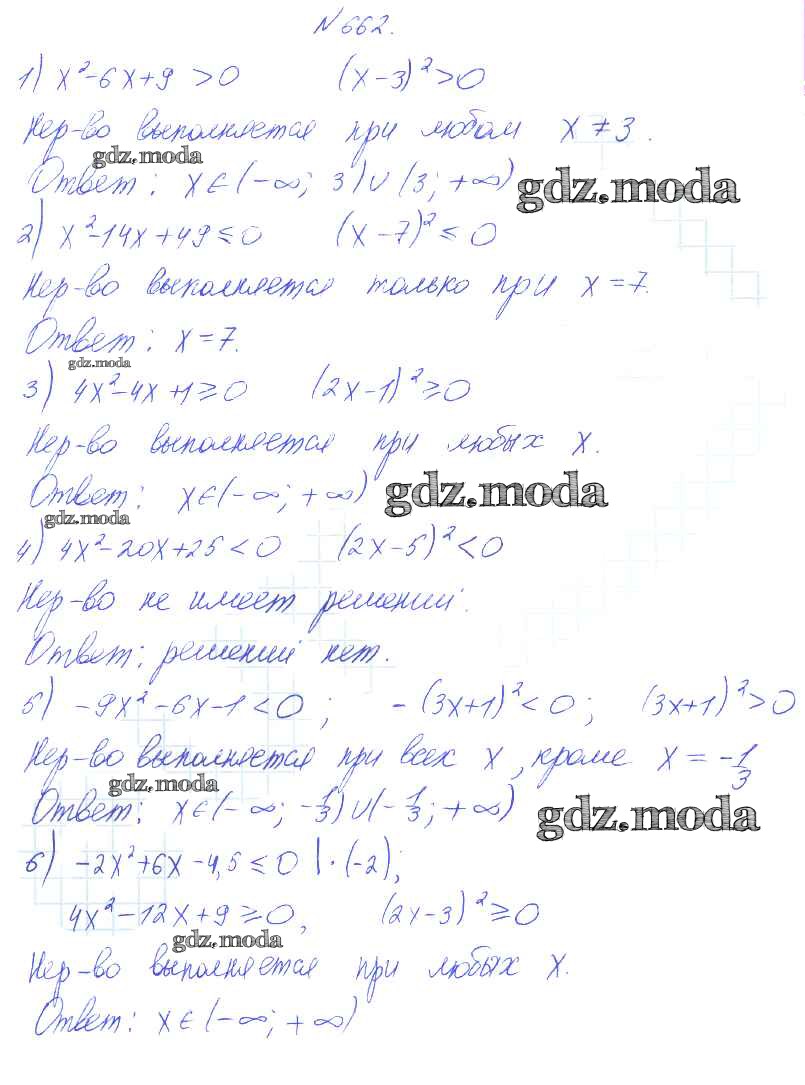 №662.
1) x²-6x+9 >0 (x-3)²>0
Нер-во выполняется при любом x≠3.
gdz.moda
Ответ: x∈(-∞; 3)∪(3; +∞)
gdz.moda
2) x²-14x+49≤0 (x-7)²≤0
Нер-во выполняется только при x=7.
Ответ: x=7.
gdz.moda
3) 4x²-4x+1≥0 (2x-1)²≥0
Нер-во выполняется при любых x.
Ответ: x∈(-∞; +∞)
gdz.moda
gdz.moda
4) 4x²-20x+25<0 (2x-5)²<0
Нер-во не имеет решений.
Ответ: решений нет.
5) -9x²-6x-1<0; -(3x+1)²<0; (3x+1)²>0
Нер-во выполняется при всех x, кроме x=-1/3
gdz.moda
Ответ: x∈(-∞; -1/3)∪(-1/3; +∞)
gdz.moda
6) -2x²+6x-4,5≤0 |·(-2);
4x²-12x+9≥0, (2x-3)²≥0
gdz.moda
Нер-во выполняется при любых x.
Ответ: x∈(-∞; +∞)